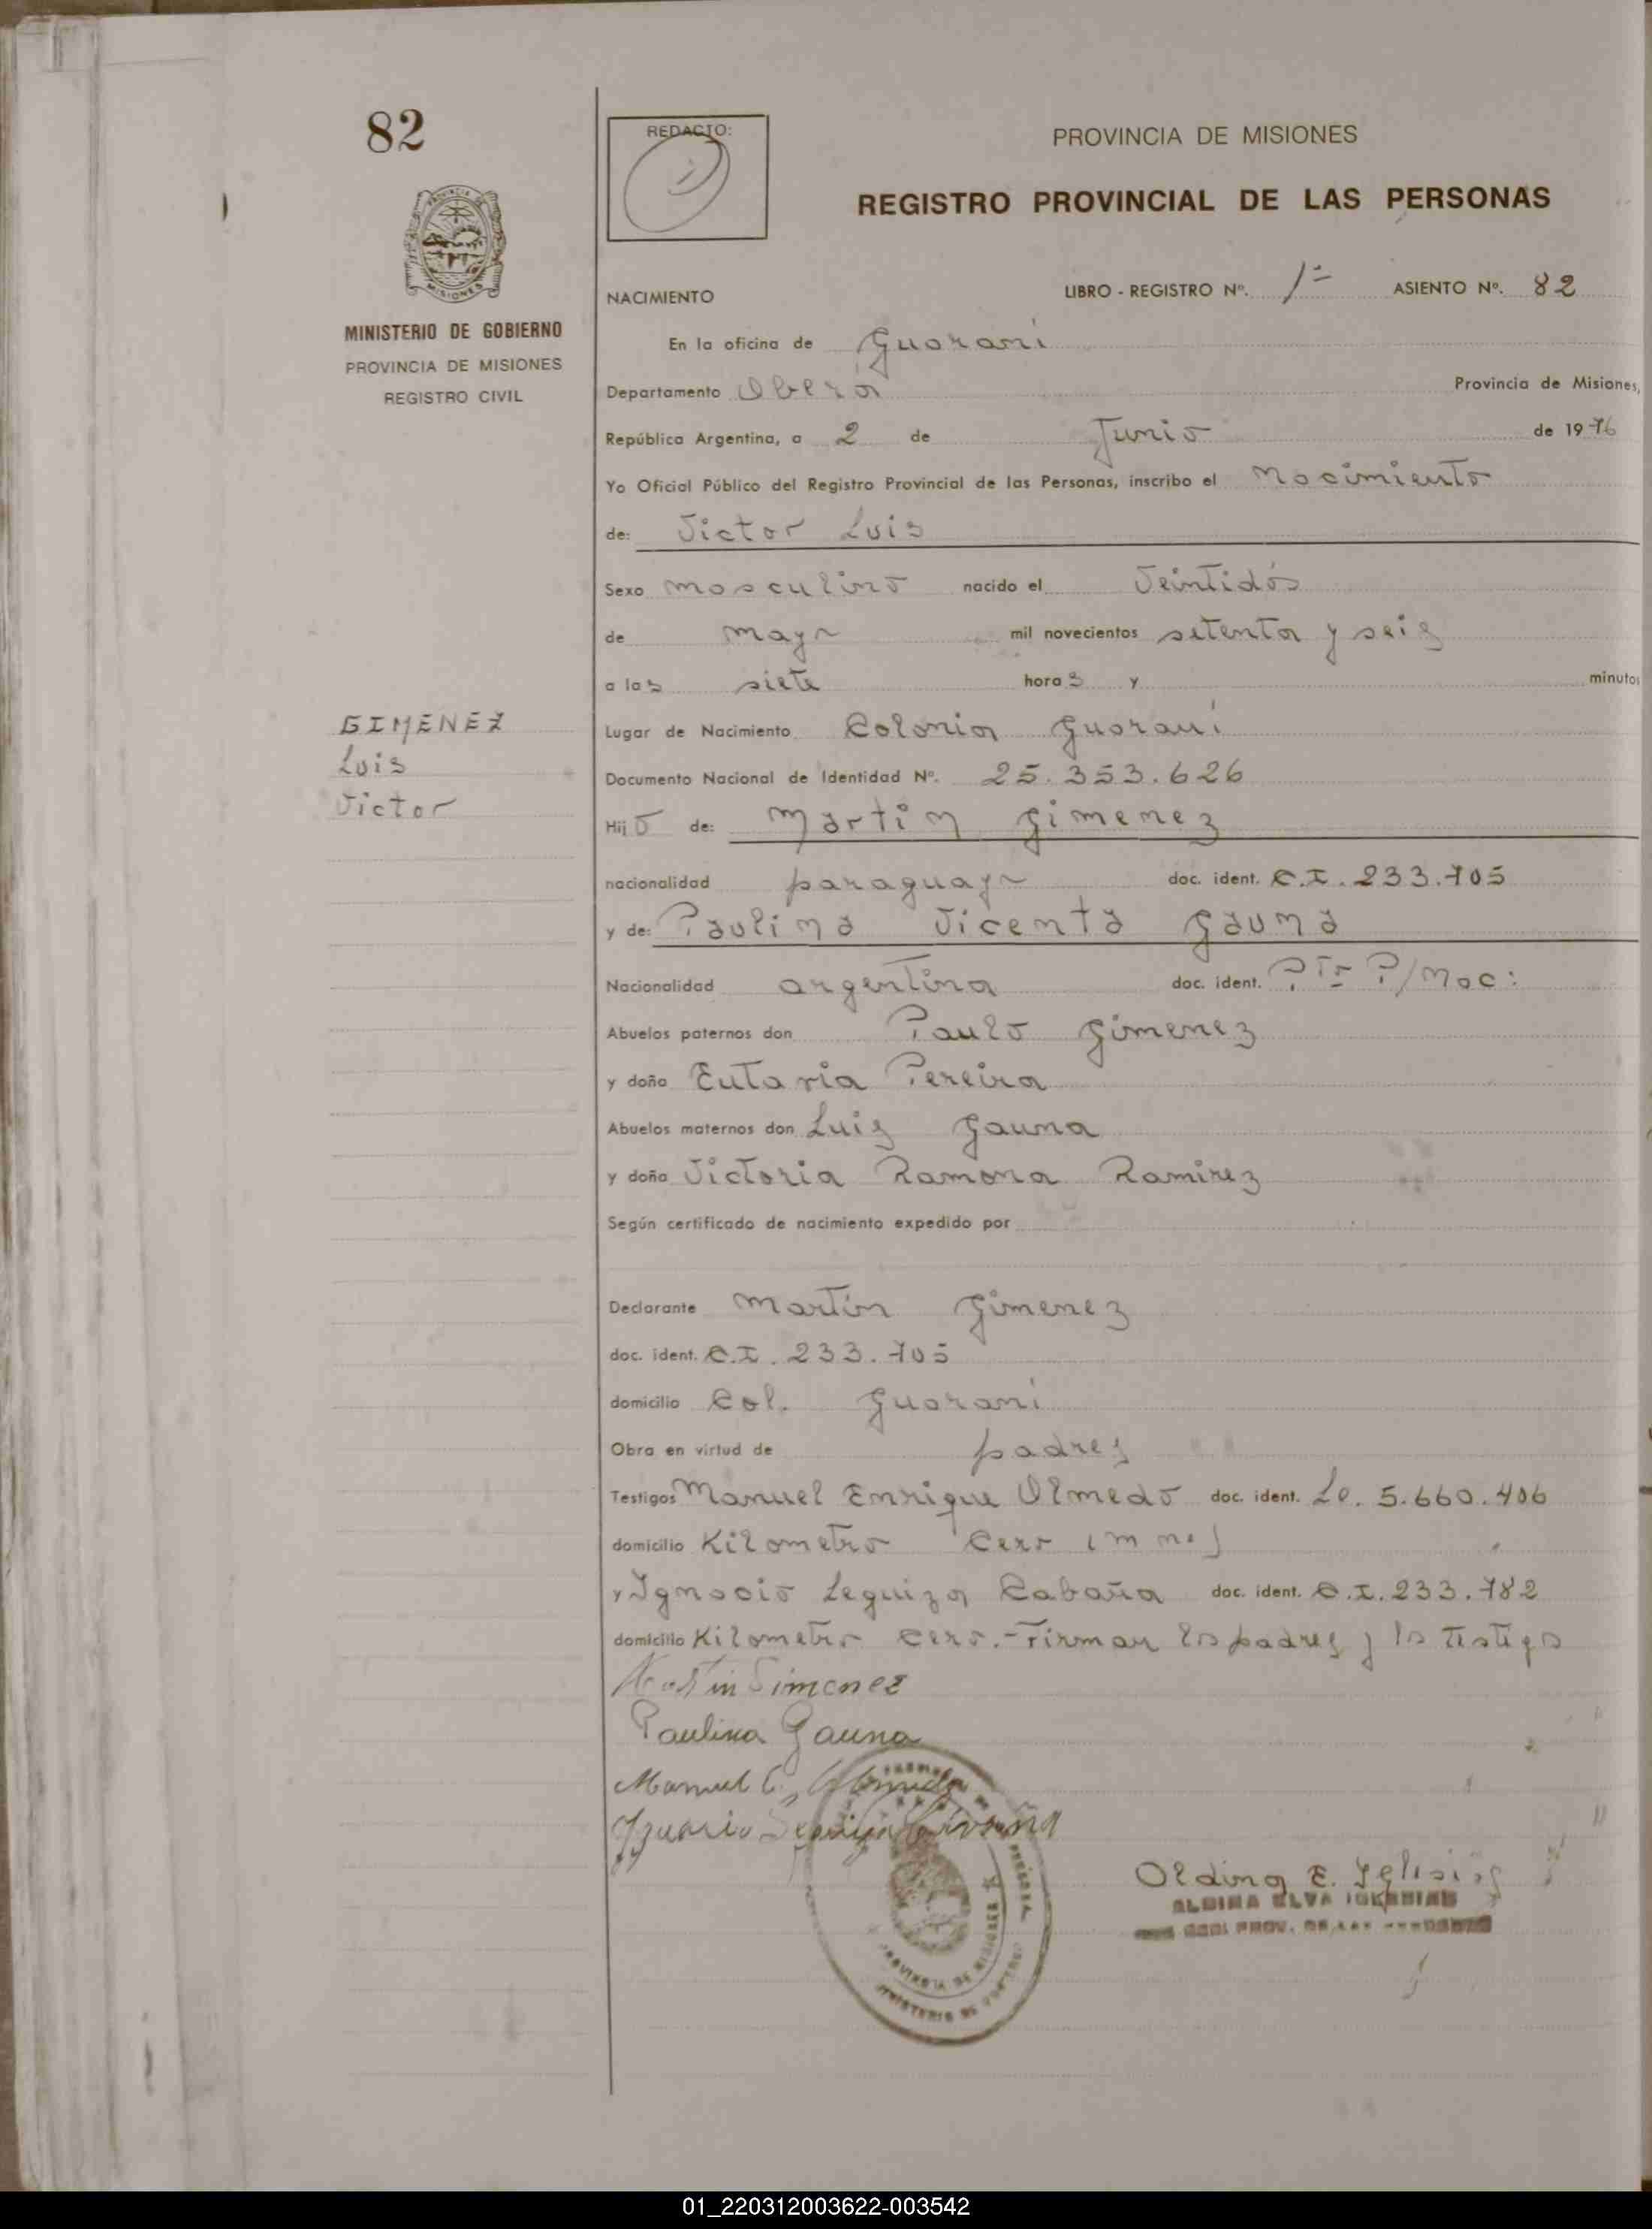 82
REDACTO:
PROVINCIA DE MISIONES
REGISTRO PROVINCIAL DE LAS PERSONAS
MISIONES
MINISTERIO DE GOBIERNO
PROVINCIA DE MISIONES
REGISTRO CIVIL
NACIMIENTO LIBRO - REGISTRO Nº. 1º ASIENTO Nº. 82
En la oficina de Guarani
Departamento Oberá Provincia de Misiones,
República Argentina, a 2 de Junio de 1976
Yo Oficial Público del Registro Provincial de las Personas, inscribo el Nacimiento
de: Victor Luis
Sexo masculino nacido el Veintidós
de mayo mil novecientos setenta y seis
a las siete horas y minutos
GIMENEZ
Luis
Victor
Lugar de Nacimiento Colonia Guaraní
Documento Nacional de Identidad Nº. 25.353.626
Hijo de: Martin Gimenez
nacionalidad paraguayo doc. ident. C.I. 233.705
y de: Paulina Vicenta Gauna
Nacionalidad argentina doc. ident.
Abuelos paternos don Paulo Gimenez
y doña Eutaria Pereira
Abuelos maternos don Luis Gauna
y doña Victoria Ramona Ramirez
Según certificado de nacimiento expedido por
Declarante Martin Gimenez
doc. ident. C.I. 233.705
domicilio Col. Guarani
Obra en virtud de padres
Testigos Manuel Enrique Olmedo doc. ident. Le. 5.660.406
domicilio Kilometro Cero (Mnes)
y Ignacio Leguiza Cabaña doc. ident. C.I. 233.782
domicilio Kilometro Cero.- Firman los padres y los testigos
Martin Gimenez
Paulina Gauna
Manuel E. Olmedo
Ignacio Leguiza Cabaña
Aldina E. Iglesias
ALDINA ELVA IGLESIAS
PROVINCIA DE MISIONES
MINISTERIO DE GOBIERNO
01_220312003622-003542